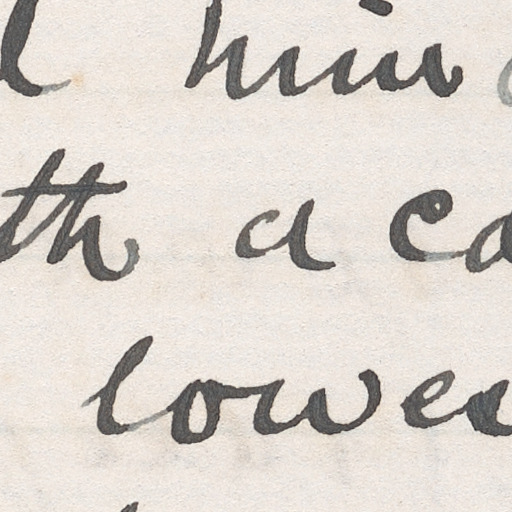 him
th a ca
lowe